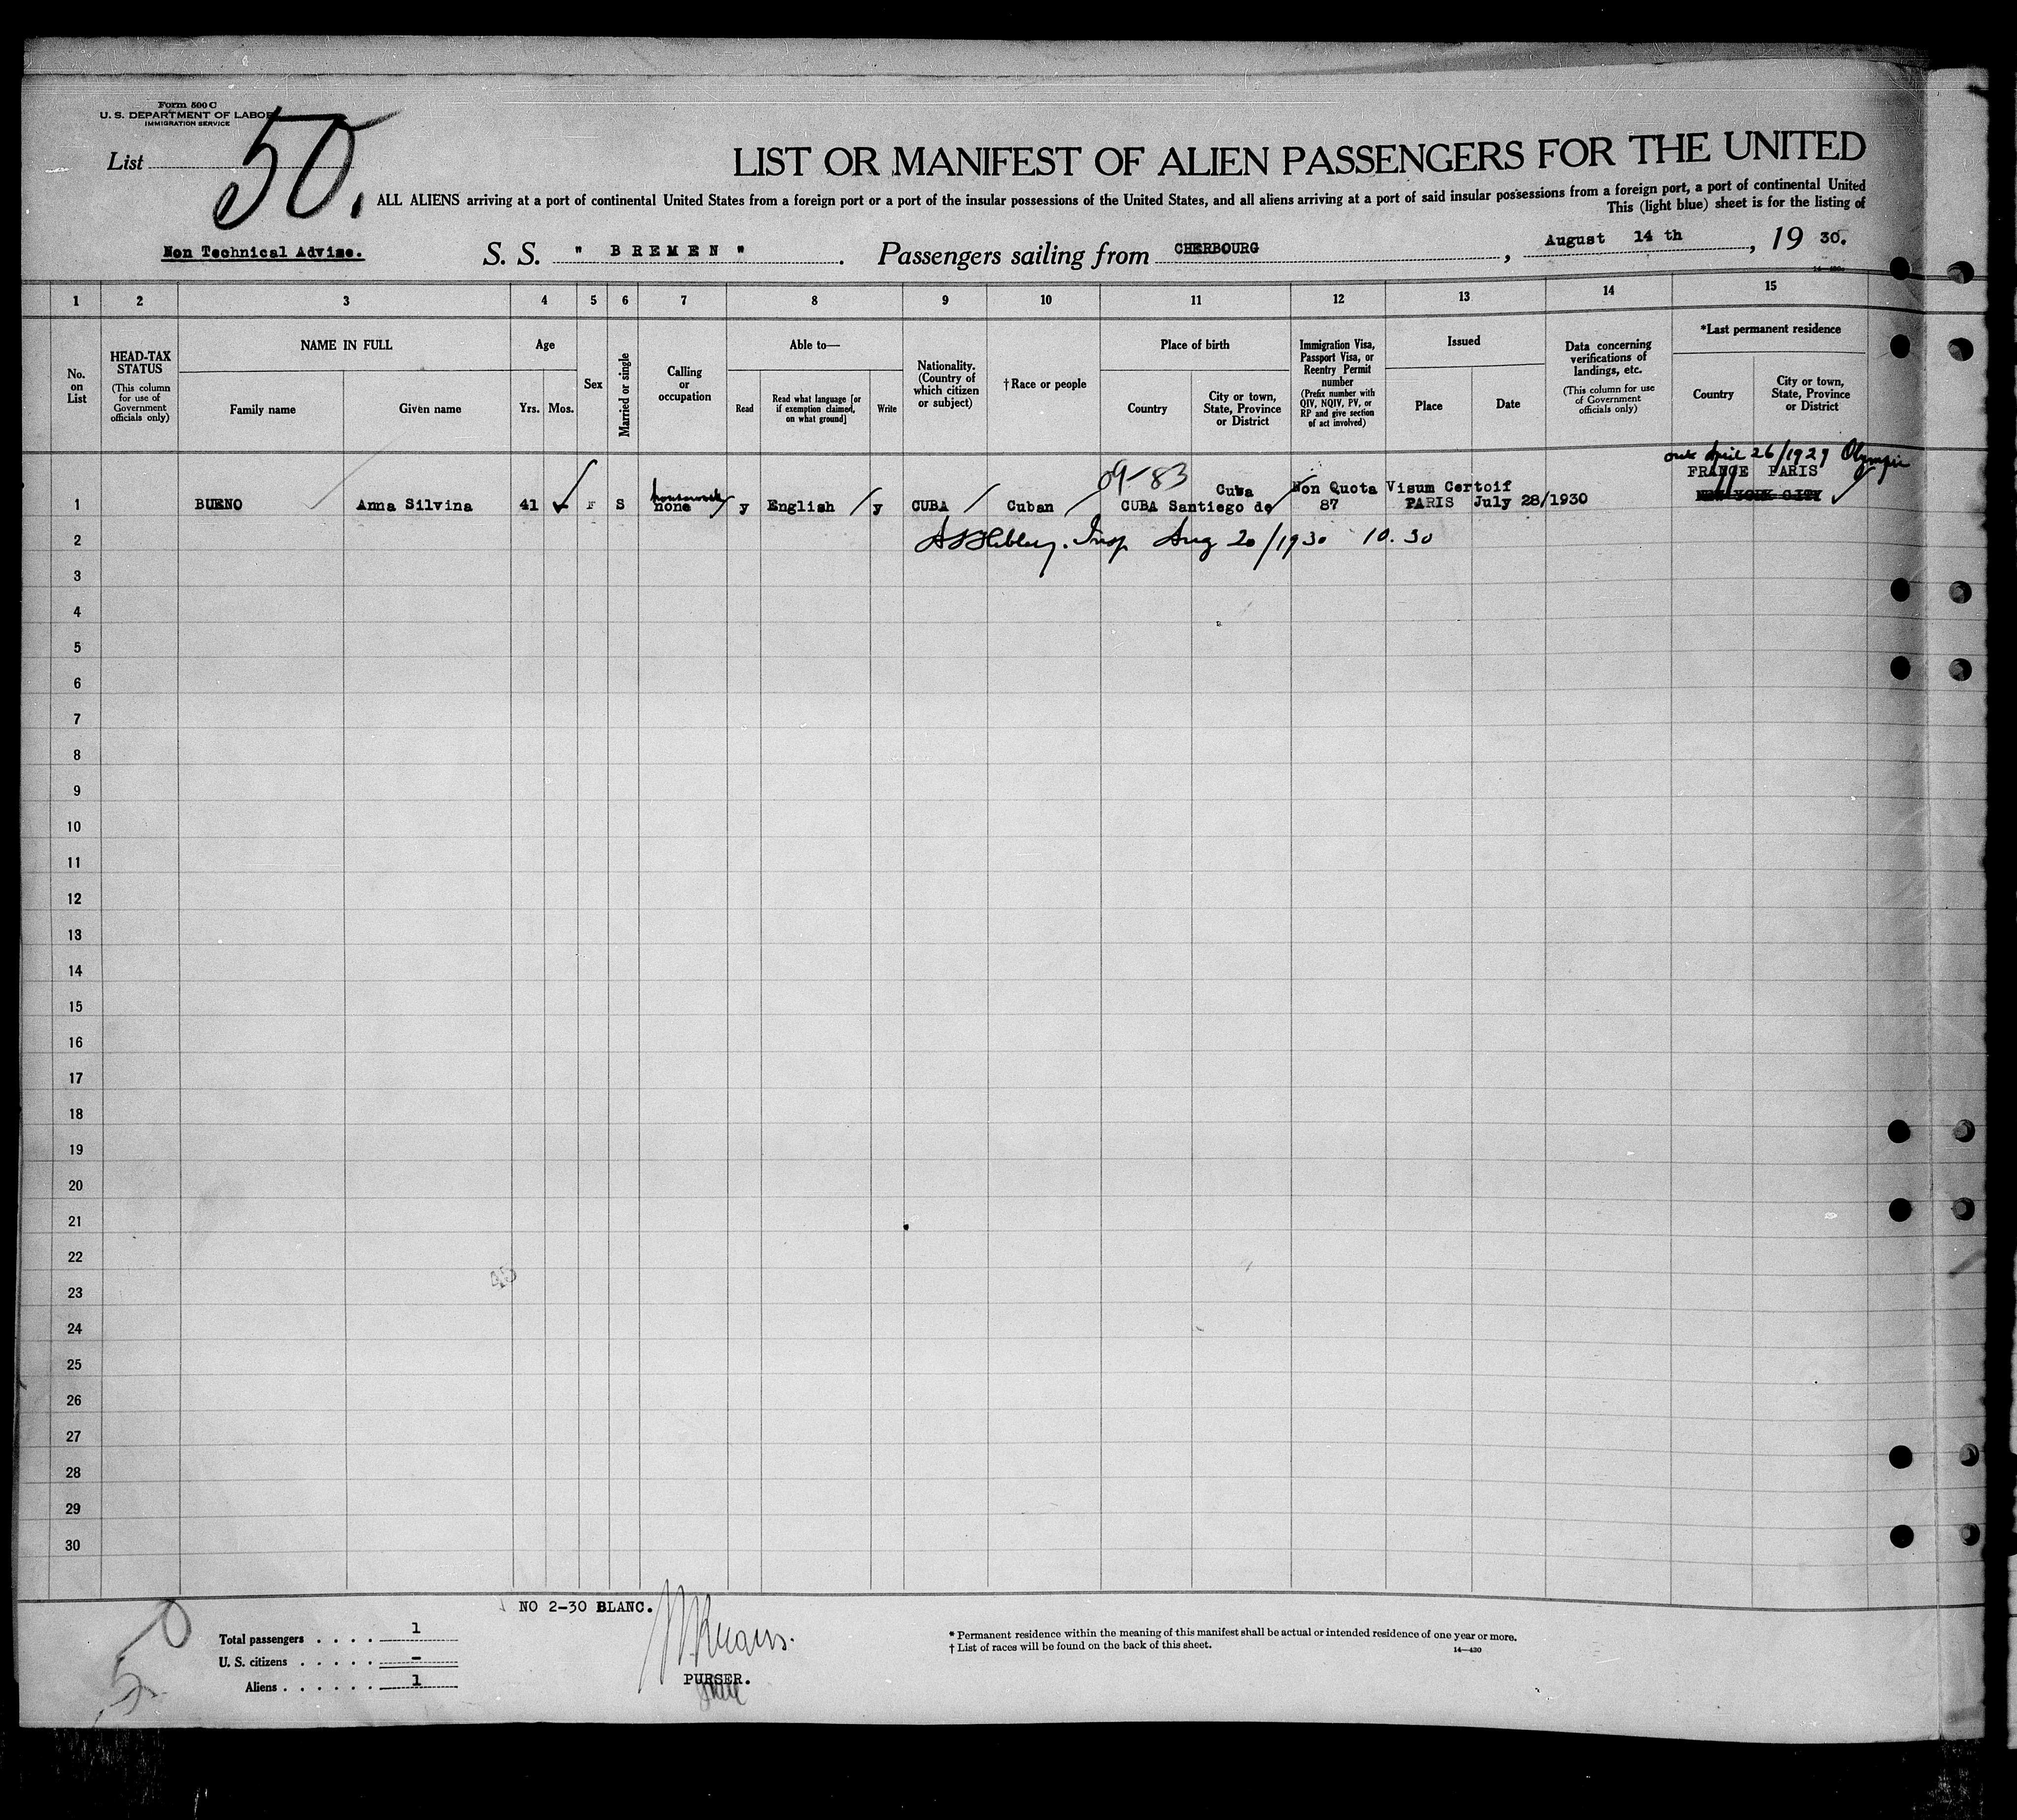 Form 500 C
U. S. DEPARTMENT OF LABOR
IMMIGRATION SERVICE
List 50.
LIST OR MANIFEST OF ALIEN PASSENGERS FOR THE UNITED
ALL ALIENS arriving at a port of continental United States from a foreign port or a port of the insular possessions of the United States, and all aliens arriving at a port of said insular possessions from a foreign port, a port of continental United
This (light blue) sheet is for the listing of
Non Technical Advise.
S. S. " BREMEN " . Passengers sailing from CHERBOURG , August 14 th , 19 30.
1 2 3 4 5 6 7 8 9 10 11 12 13 14 15
No. on List
HEAD-TAX STATUS
(This column for use of Government officials only)
NAME IN FULL
Family name
Given name
Age
Yrs.
Mos.
Sex
Married or single
Calling or occupation
Able to—
Read
Read what language [or if exemption claimed, on what ground]
Write
Nationality. (Country of which citizen or subject)
†Race or people
Place of birth
Country
City or town, State, Province or District
Immigration Visa, Passport Visa, or Reentry Permit number
(Prefix number with QIV, NQIV, PV, or RP and give section of act involved)
Issued
Place
Date
Data concerning verifications of landings, etc.
(This column for use of Government officials only)
*Last permanent residence
Country
City or town, State, Province or District
April 26/1929 Olympic
FRANCE PARIS
09-83
housework
Cuba Non Quota Visum Certoif
1 BUENO Anna Silvina 41 F S none y English y CUBA Cuban CUBA Santiego de 87 PARIS July 28/1930 NEW YORK CITY
2
Insp Aug 20/1930 10.30
3
4
5
6
7
8
9
10
11
12
13
14
15
16
17
18
19
20
21
22
23
24
25
26
27
28
29
30
NO 2-30 BLANC.
Total passengers . . . . 1
U. S. citizens . . . . . —
Aliens . . . . . . 1
PURSER.
* Permanent residence within the meaning of this manifest shall be actual or intended residence of one year or more.
† List of races will be found on the back of this sheet.
14—430
50